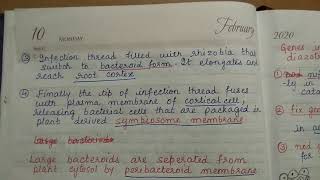 10 MONDAY
February
2020
③ Infection thread filled with rhizobia that
switch to bacteroid form. It elongates and
reach root cortex
④ Finally the tip of infection thread fuses
with plasma membrane of cortical cell,
releasing bacterial cells that are packaged in
plant derived symbiosome membrane
Large
Large bacteroids are seperated from
plant cytosol by peribacteroid membrane
Genes in
diazot
① nod
nifty
in ca
② fix gen
in
③ nod g
for m